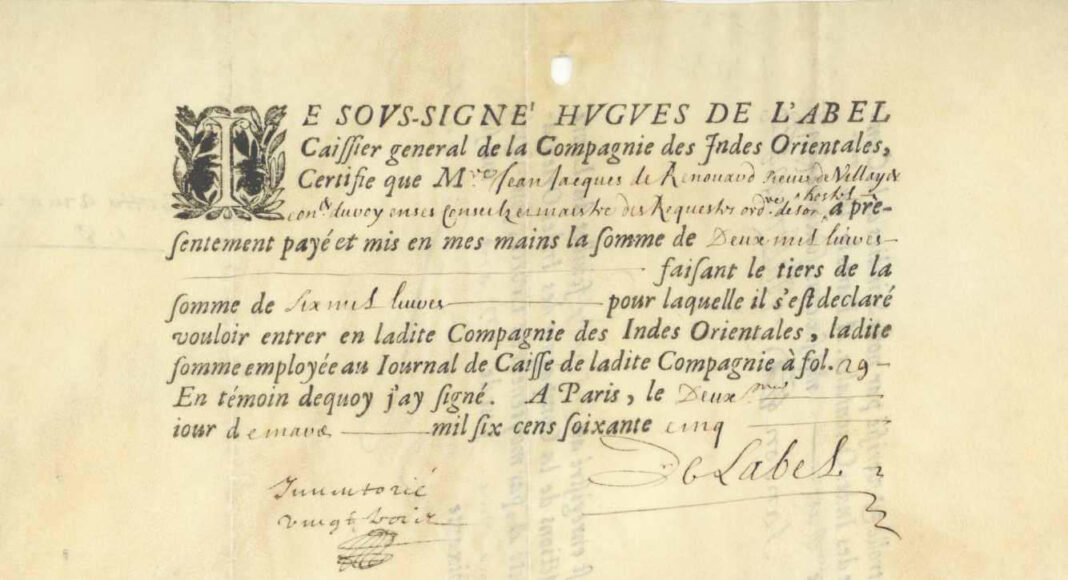 IE SOVS-SIGNE' HVGVES DE L'ABEL
Caiſſier general de la Compagnie des Indes Orientales,
Certifie que M.re Jean Jacques de Renouard de Villay
Con.er du Roy en ses Conseilz et maistre des Requestes ord.re de son hostel, a pre-
ſentement payé et mis en mes mains la ſomme de Deux mil livres
faiſant le tiers de la
ſomme de six mil livres pour laquelle il s'eſt declaré
vouloir entrer en ladite Compagnie des Indes Orientales, ladite
ſomme employée au Iournal de Caiſſe de ladite Compagnie à fol. 29
En témoin dequoy j'ay ſigné. A Paris, le Deux.me
iour de mars mil ſix cens ſoixante cinq
De Label
Inventorié
vingt